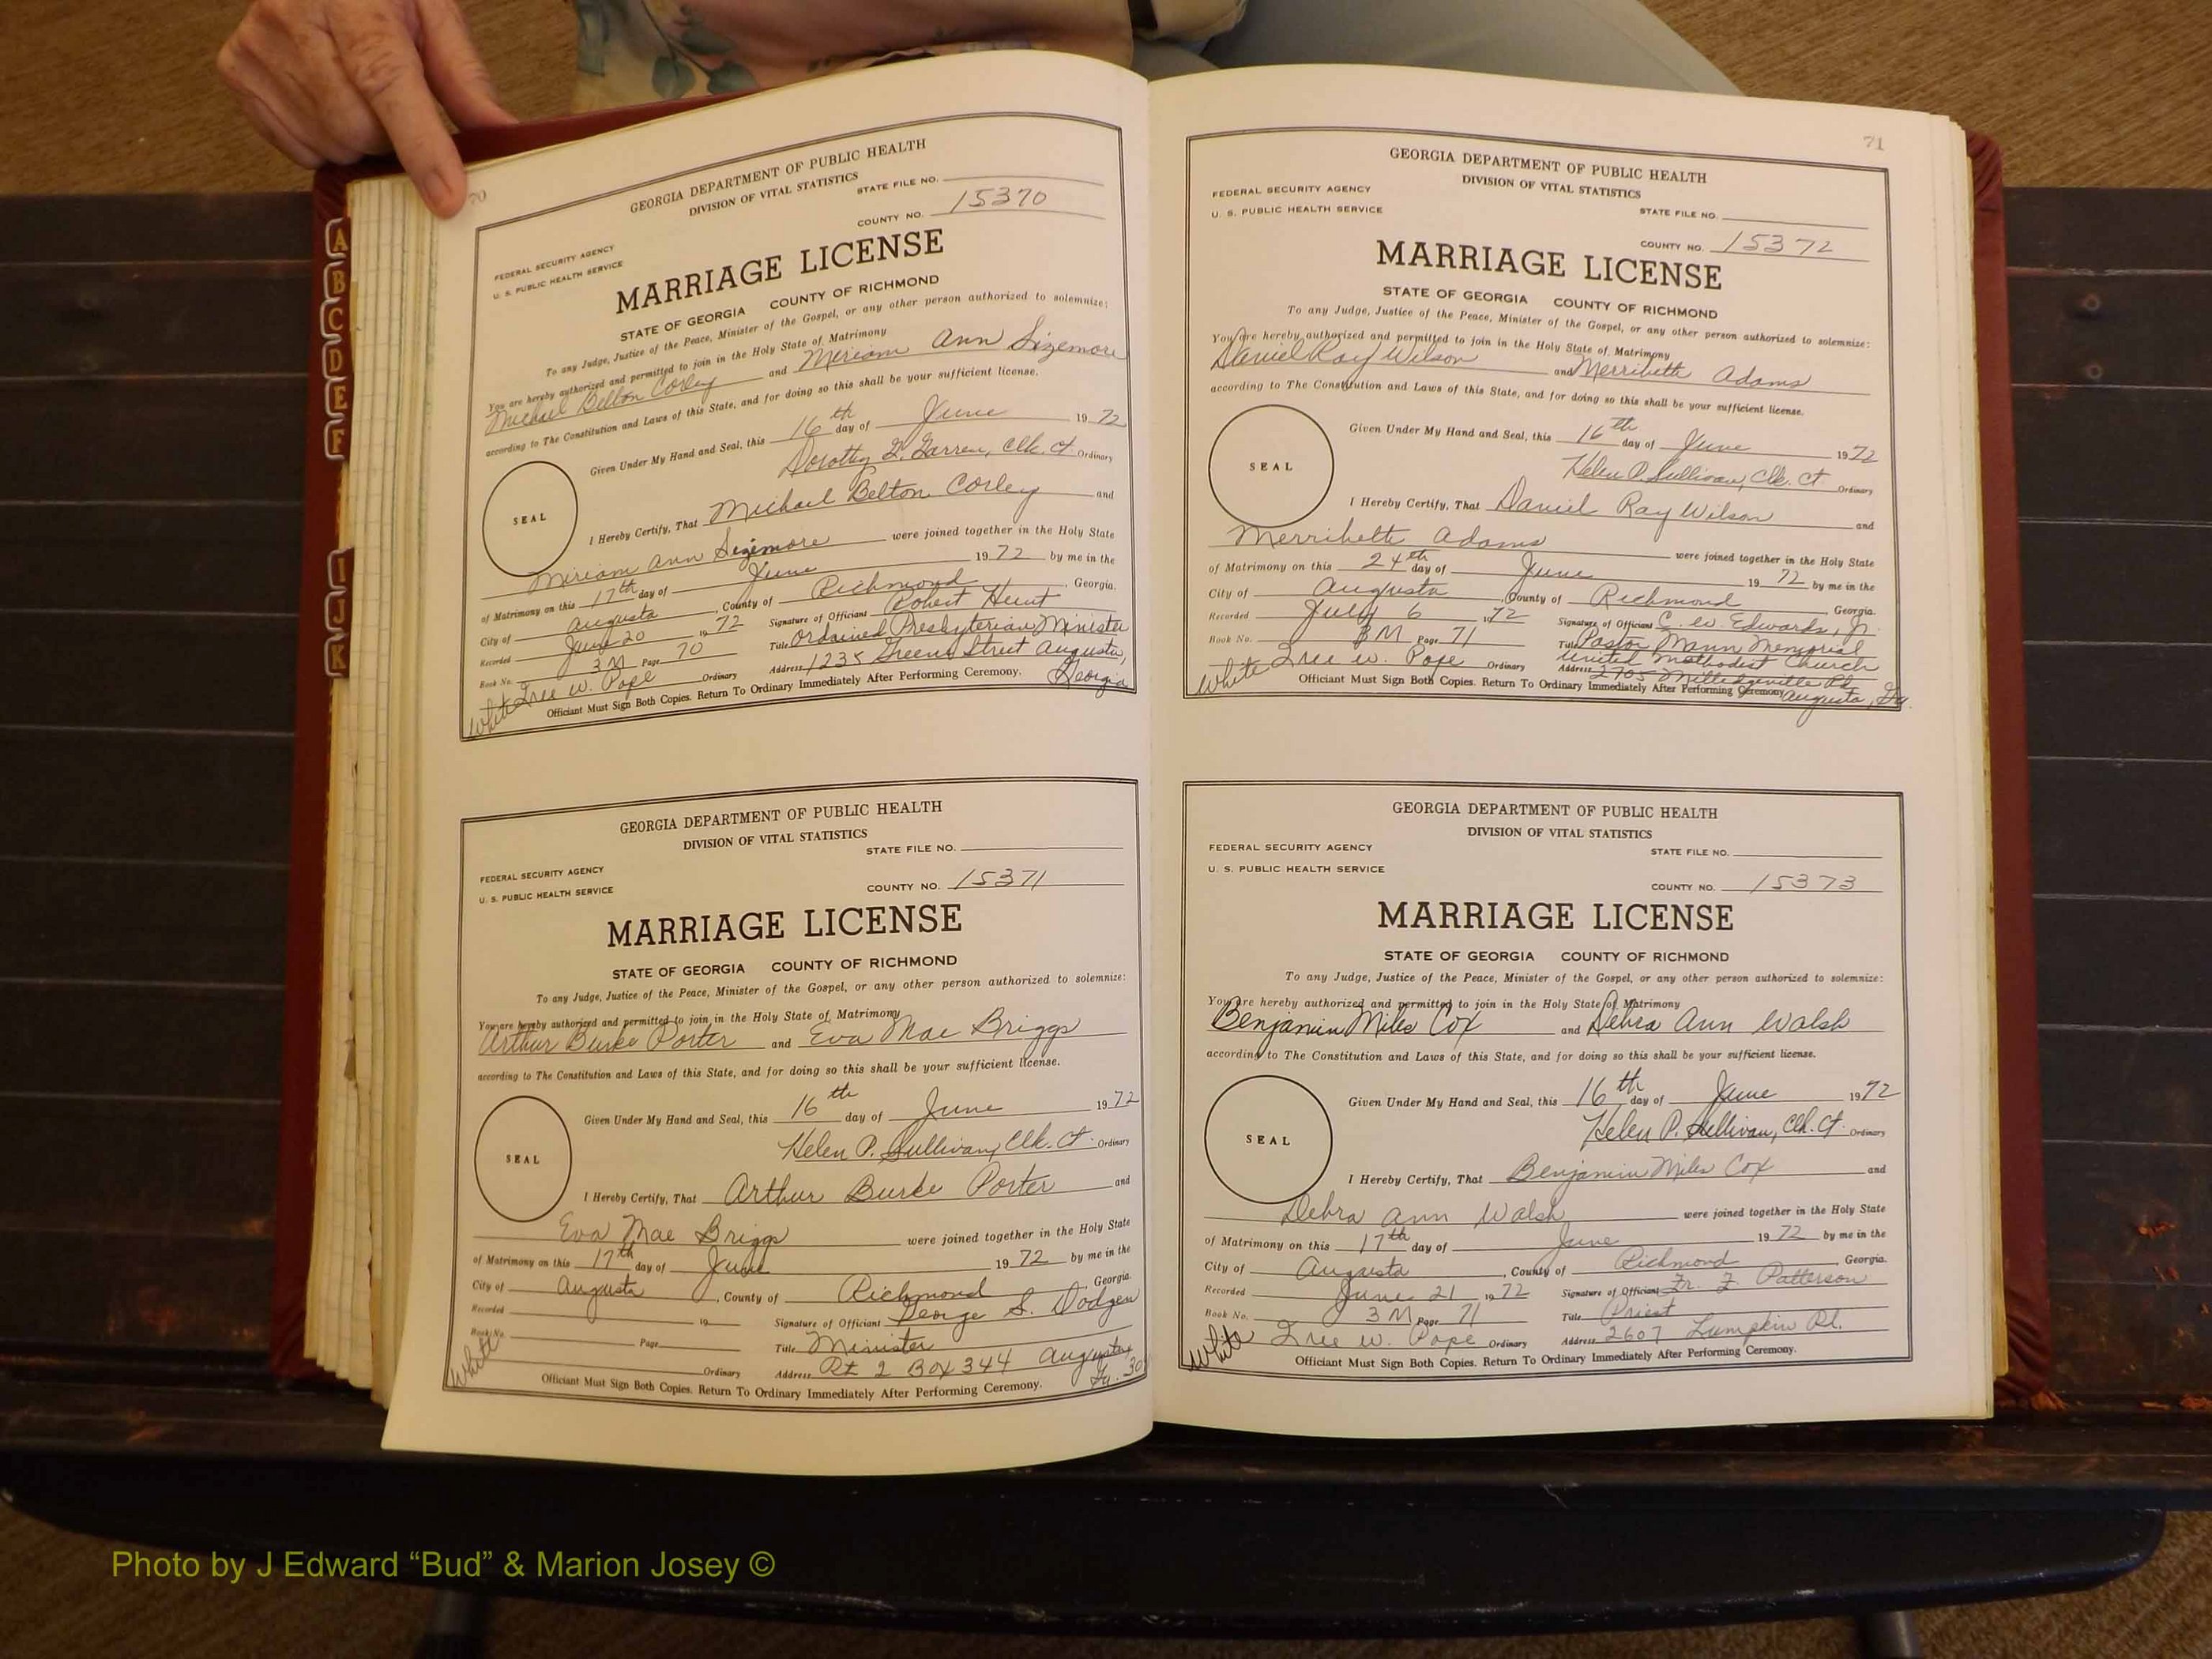 70
GEORGIA DEPARTMENT OF PUBLIC HEALTH
DIVISION OF VITAL STATISTICS
STATE FILE NO.
COUNTY NO. 15370
FEDERAL SECURITY AGENCY
U. S. PUBLIC HEALTH SERVICE
MARRIAGE LICENSE
STATE OF GEORGIA COUNTY OF RICHMOND
To any Judge, Justice of the Peace, Minister of the Gospel, or any other person authorized to solemnize:
You are hereby authorized and permitted to join in the Holy State of Matrimony
Michael Belton Corley and Miriam Ann Sizemore
according to The Constitution and Laws of this State, and for doing so this shall be your sufficient license.
Given Under My Hand and Seal, this 16th day of June 1972
Dorothy Garren, Clk. Ct. Ordinary
SEAL
I Hereby Certify, That Michael Belton Corley and
Miriam Ann Sizemore were joined together in the Holy State
of Matrimony on this 17th day of June 1972 by me in the
City of Augusta, County of Richmond, Georgia.
Recorded June 20 1972 Signature of Officiant Robert Hunt
Book No. 3M Page 70 Title Ordained Presbyterian Minister
White Ordinary Address 1235 Greene Street Augusta, Georgia
W. Pope
Officiant Must Sign Both Copies. Return To Ordinary Immediately After Performing Ceremony.
GEORGIA DEPARTMENT OF PUBLIC HEALTH
DIVISION OF VITAL STATISTICS
STATE FILE NO.
FEDERAL SECURITY AGENCY
U. S. PUBLIC HEALTH SERVICE
COUNTY NO. 15371
MARRIAGE LICENSE
STATE OF GEORGIA COUNTY OF RICHMOND
To any Judge, Justice of the Peace, Minister of the Gospel, or any other person authorized to solemnize:
You are hereby authorized and permitted to join in the Holy State of Matrimony
Arthur Burke Porter and Eva Mae Briggs
according to The Constitution and Laws of this State, and for doing so this shall be your sufficient license.
Given Under My Hand and Seal, this 16th day of June 1972
Helen P. Sullivan, Clk. Ct. Ordinary
SEAL
I Hereby Certify, That Arthur Burke Porter and
Eva Mae Briggs were joined together in the Holy State
of Matrimony on this 17th day of June 1972 by me in the
City of Augusta, County of Richmond, Georgia.
Recorded 19 Signature of Officiant George S.
Book No. Page Title Minister
White Ordinary Address Rt 2 Box 344 Augusta, Ga. 30
Officiant Must Sign Both Copies. Return To Ordinary Immediately After Performing Ceremony.
71
GEORGIA DEPARTMENT OF PUBLIC HEALTH
DIVISION OF VITAL STATISTICS
FEDERAL SECURITY AGENCY
U. S. PUBLIC HEALTH SERVICE
STATE FILE NO.
COUNTY NO. 15372
MARRIAGE LICENSE
STATE OF GEORGIA COUNTY OF RICHMOND
To any Judge, Justice of the Peace, Minister of the Gospel, or any other person authorized to solemnize:
You are hereby authorized and permitted to join in the Holy State of Matrimony
Daniel Ray Wilson and Merribeth Adams
according to The Constitution and Laws of this State, and for doing so this shall be your sufficient license.
Given Under My Hand and Seal, this 16th day of June 1972
Helen P. Sullivan, Clk. Ct. Ordinary
SEAL
I Hereby Certify, That Daniel Ray Wilson and
Merribeth Adams were joined together in the Holy State
of Matrimony on this 24th day of June 1972 by me in the
City of Augusta, County of Richmond, Georgia.
Recorded July 6 1972 Signature of Officiant C. W. Edwards, Jr.
Book No. 3M Page 71 Title Pastor Mann Memorial
United Methodist Church
White W. Pope Ordinary Address 2705 Milledgeville Rd
Augusta, Ga.
Officiant Must Sign Both Copies. Return To Ordinary Immediately After Performing Ceremony.
GEORGIA DEPARTMENT OF PUBLIC HEALTH
DIVISION OF VITAL STATISTICS
FEDERAL SECURITY AGENCY
U. S. PUBLIC HEALTH SERVICE
STATE FILE NO.
COUNTY NO. 15373
MARRIAGE LICENSE
STATE OF GEORGIA COUNTY OF RICHMOND
To any Judge, Justice of the Peace, Minister of the Gospel, or any other person authorized to solemnize:
You are hereby authorized and permitted to join in the Holy State of Matrimony
Benjamin Miles Cox and Debra Ann Walsh
according to The Constitution and Laws of this State, and for doing so this shall be your sufficient license.
Given Under My Hand and Seal, this 16th day of June 1972
Helen P. Sullivan, Clk. Ct. Ordinary
SEAL
I Hereby Certify, That Benjamin Miles Cox and
Debra Ann Walsh were joined together in the Holy State
of Matrimony on this 17th day of June 1972 by me in the
City of Augusta, County of Richmond, Georgia.
Recorded June 21 1972 Signature of Officiant Fr. F. Patterson
Book No. 3M Page 71 Title Priest
White W. Pope Ordinary Address 2607 Lumpkin Rd.
Officiant Must Sign Both Copies. Return To Ordinary Immediately After Performing Ceremony.
A
B
C
D
E
F
I
J
K
Photo by J Edward “Bud” & Marion Josey ©